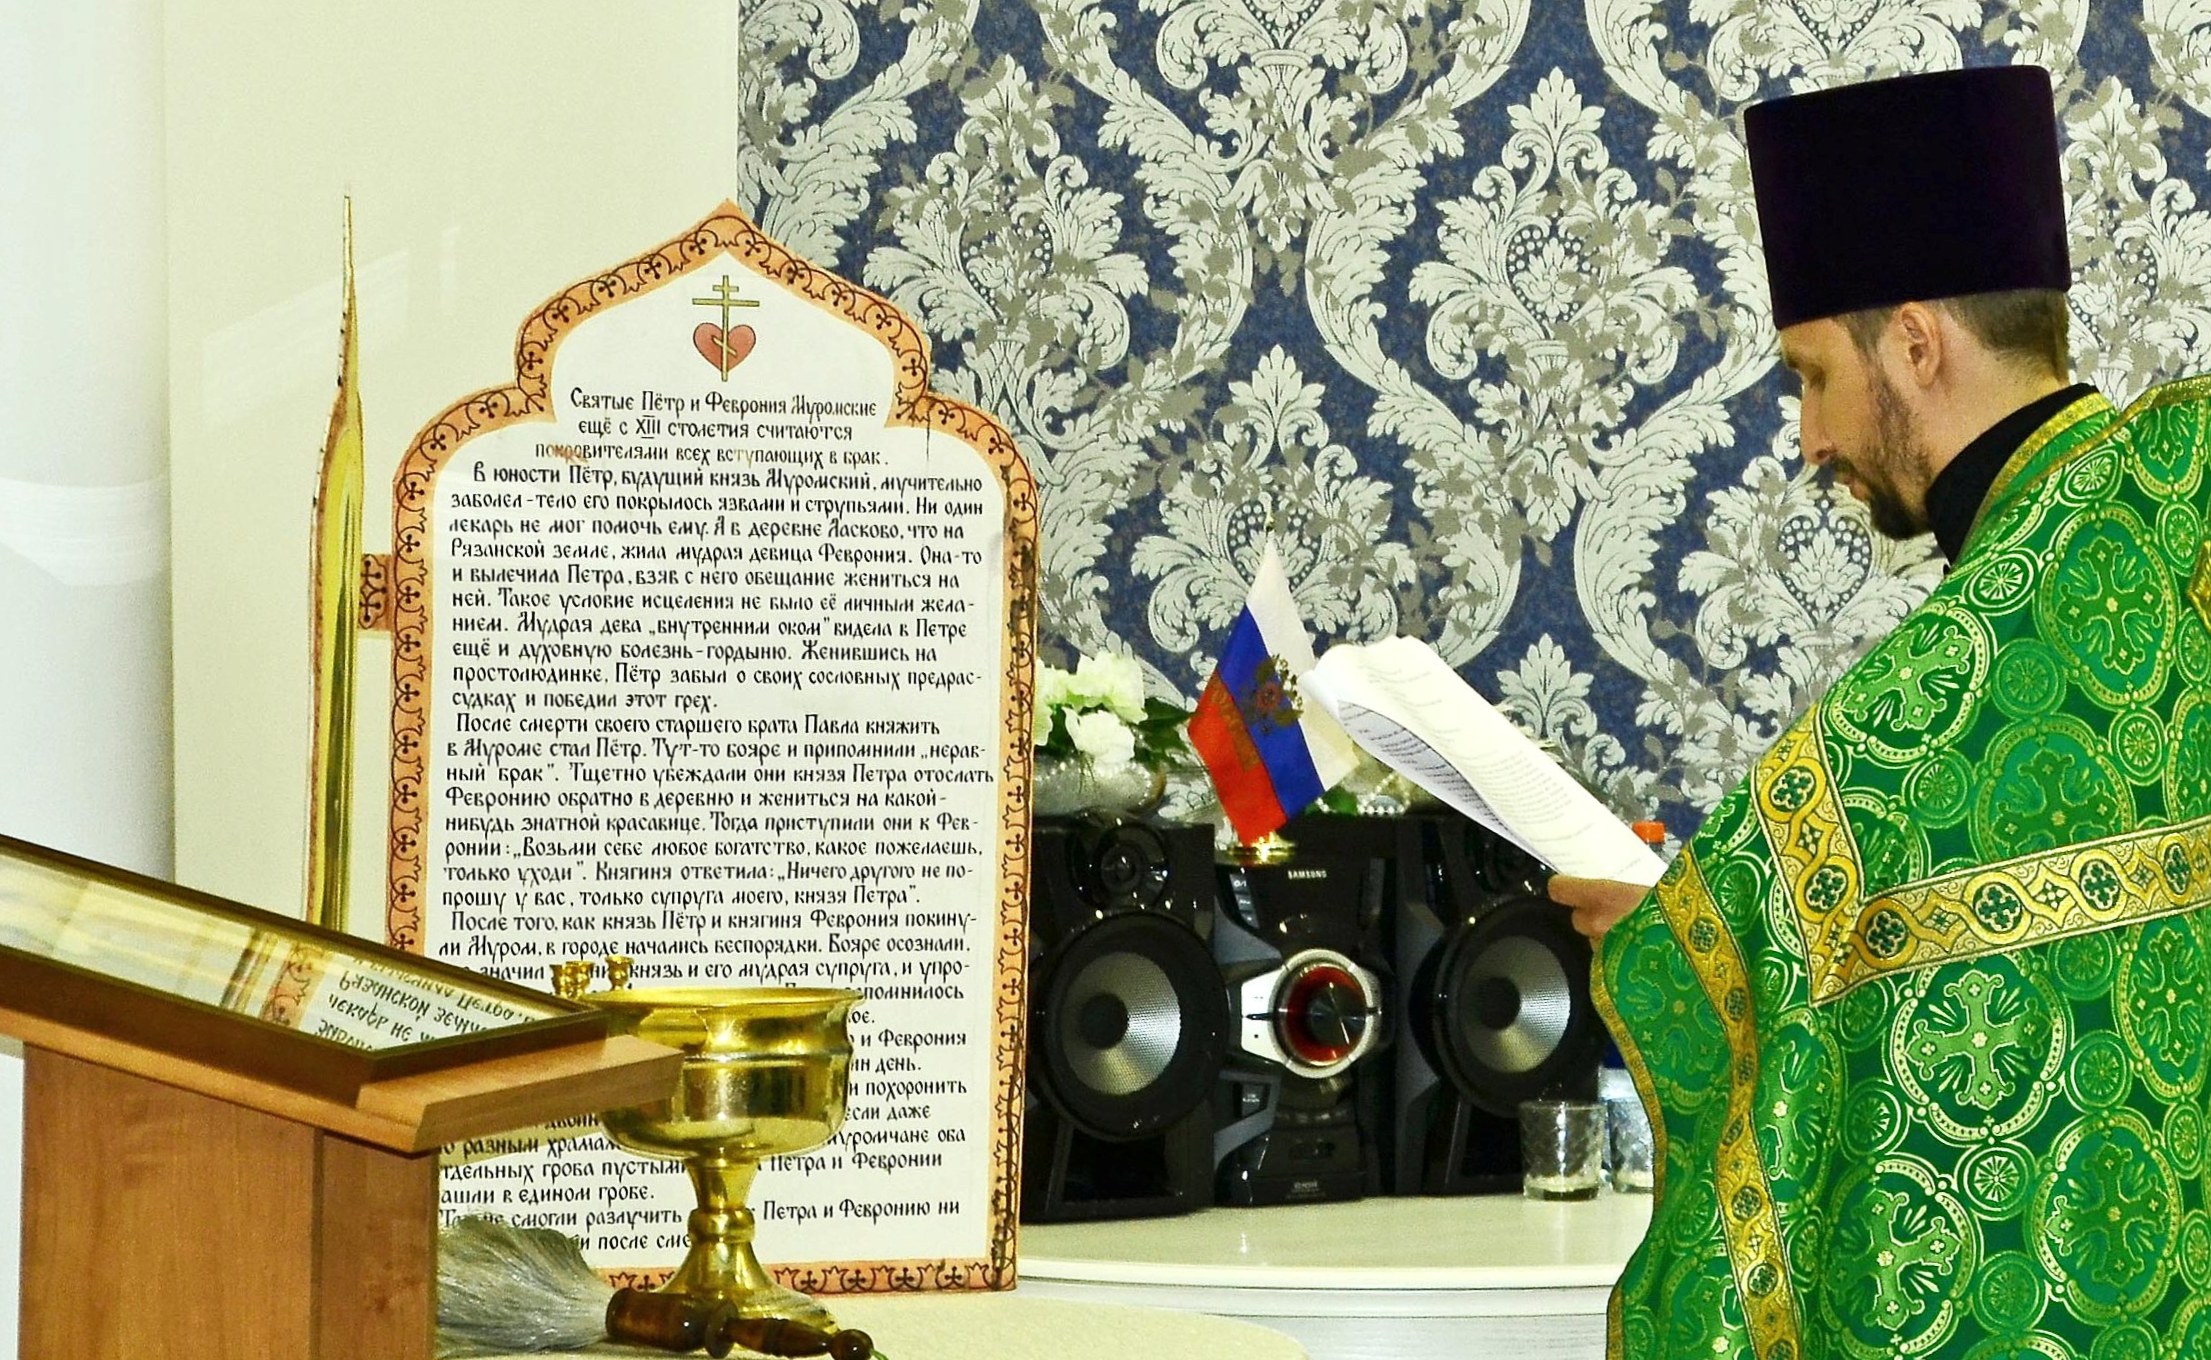 Святые Пётр и Феврония Муромские
ещё с XIII столетия считаются
покровителями всех вступающих в брак.
В юности Пётр, будущий князь Муромский, мучительно
заболел - тело его покрылось язвами и струпьями. Ни один
лекарь не мог помочь ему. А в деревне Ласково, что на
Рязанской земле, жила мудрая девица Феврония. Она-то
и вылечила Петра, взяв с него обещание жениться на
ней. Такое условие исцеления не было её личным жела-
нием. Мудрая дева „внутренним оком" видела в Петре
ещё и духовную болезнь - гордыню. Женившись на
простолюдинке, Пётр забыл о своих сословных предрас-
судках и победил этот грех.
После смерти своего старшего брата Павла княжить
в Муроме стал Пётр. Тут-то бояре и припомнили „нерав-
ный брак". Тщетно убеждали они князя Петра отослать
Февронию обратно в деревню и жениться на какой-
нибудь знатной красавице. Тогда приступили они к Фев-
ронии: „Возьми себе любое богатство, какое пожелаешь,
только уходи". Княгиня ответила: „Ничего другого не по-
прошу у вас, только супруга моего, князя Петра".
После того, как князь Пётр и княгиня Феврония покину-
ли Муром, в городе начались беспорядки. Бояре осознали,
значил князь и его мудрая супруга, и упро-
и Феврония
день.
и похоронить
если даже
разным муромчане оба
гроба Петра и Февронии
в едином гробе.
смогли разлучить Петра и Февронию ни
после
SAMSUNG
Рязанской
лекарь не